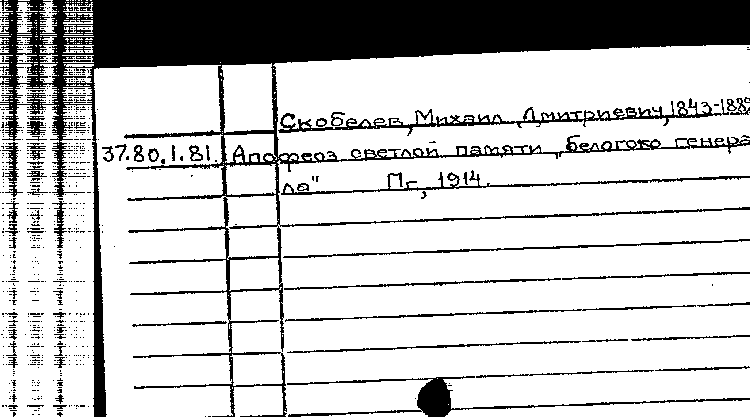 Скобелев, Михаил Дмитриевич, 1843-1882
37.80.1.81. Апофеоз светлой памяти „белогоко генера
ла" Пг, 1914.